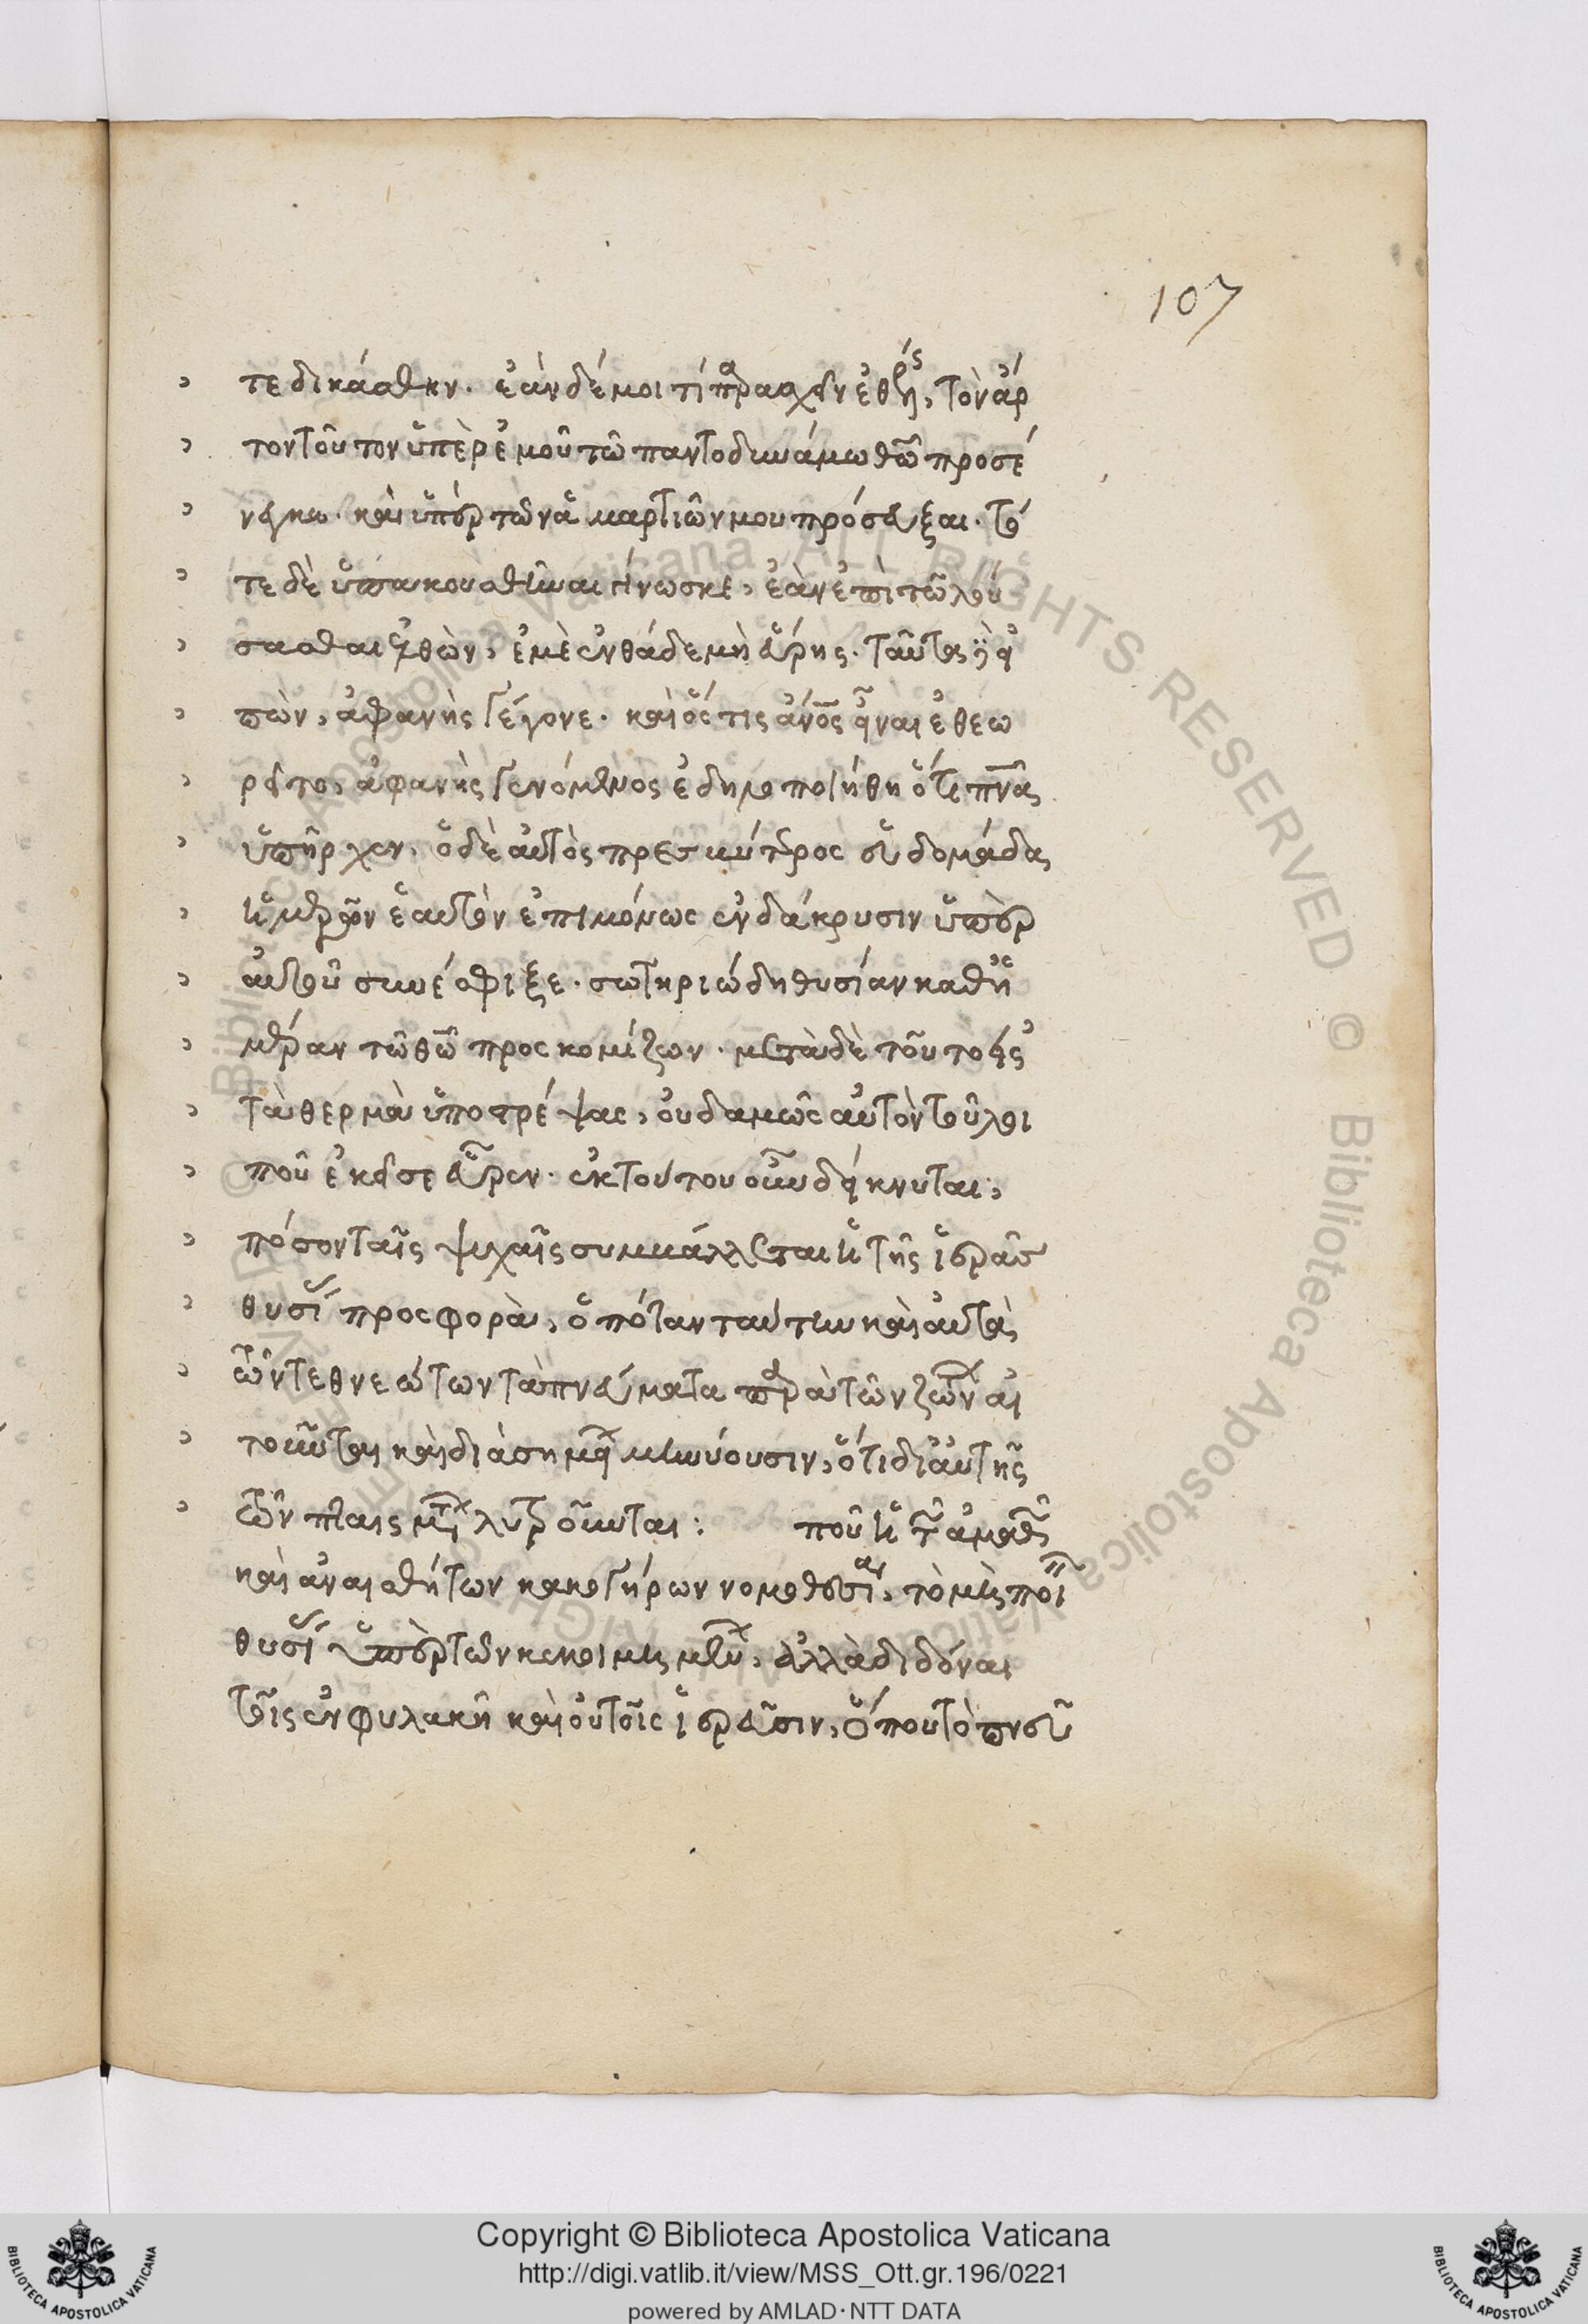 107
τε δικάσθην. ἐὰν δέ μοι τί παρασχεῖν ἐθέλῃς, τὸν ἄρ
τον τοῦτον ὑπὲρ ἐμοῦ τῶ παντοδυνάμω θῶ προσέ
νεγκε. καὶ ὑπὲρ τῶν ἁμαρτιῶν μου πρόσευξαι. τό
τε δὲ ὑπακουσθῆναι γίνωσκε, ἐὰν ἐπὶ τῶ λού
σασθαι ἐλθὼν, ἐμὲ ἐνθάδε μὴ εὕρης. ταῦτα
πὼν, ἀφανὴς γέγονε. καὶ ὅς τις ἄνος εἶναι ἐθεω
ρεῖτο, ἀφανὴς γενόμενος ἐδηλοποιήθη ὅτι πνᾶ
ὑπῆρχεν. ὁ δὲ αὐτὸς πρεσβύτερος ἑβδομάδα
ἡμερῶν ἑαυτὸν ἐπιμόνως ἐν δάκρυσιν ὑπὲρ
αὐτοῦ συνέσφιξε. σωτηριώδη θυσίαν καθ' ἡ
μέραν τῶ θῶ προσκομίζων. μετὰ δὲ τοῦτο εἰς
τὰ θερμὰ ὑποστρέψας, οὐδαμῶς αὐτὸν τοῦ λοι
ποῦ ἐκεῖσε εὗρεν. ἐκ τούτου οὖν δείκνυται,
πόσον ταῖς ψυχαῖς συμβάλλεται ἡ τῆς ἱερᾶς
θυσίας προσφορὰ, ὁπόταν ταύτην καὶ αὐτὰ
τῶν τεθνεώτων τὰ πνεύματα παρὰ τῶν ζώντων αἰ
τοῦνται καὶ διὰ σημείων μηνύουσιν, ὅτι δι' αὐτῆς
τῶν πταισμάτων λυτροῦνται: ποῦ ἡ τῶν ἀμαθῶν
καὶ ἀναισθήτων κακογήρων νομοθεσία, τὸ μὴ ποιεῖν
θυσίας ὑπὲρ τῶν κεκοιμημένων, ἀλλὰ διδόναι
τοῖς ἐν φυλακῆ καὶ οὐ τοῖς ἱερεῦσιν, ὅπου τὸ πνεῦ
Copyright © Biblioteca Apostolica Vaticana
http://digi.vatlib.it/view/MSS_Ott.gr.196/0221
powered by AMLAD·NTT DATA